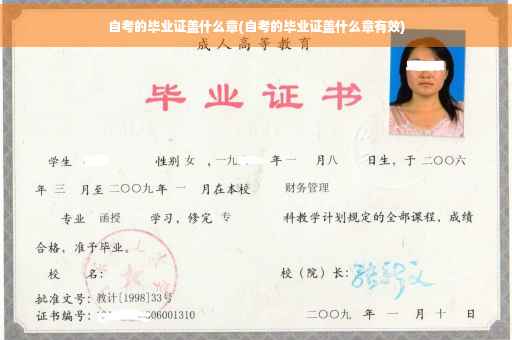 自考的毕业证盖什么章(自考的毕业证盖什么章有效)
成人高等教育
毕业证书
学生 性别 女 ，一九 年 一 月八 日生，于 二〇〇六
年 三 月至 二〇〇九 年 一 月在本校 财务管理
专业 函授 学习，修完 专 科教学计划规定的全部课程，成绩
合格，准予毕业。
校 名： 校（院）长：
批准文号：教计[1998]33号
证书编号： 06001310 二〇〇九 年 一 月 十 日